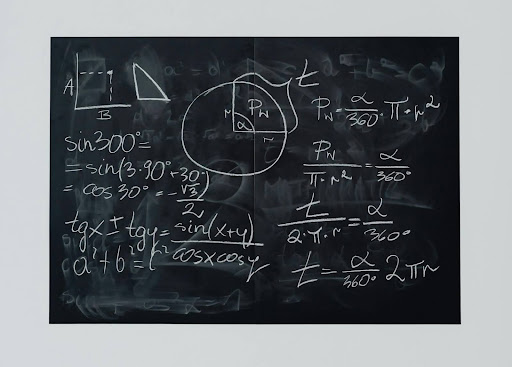 A
B
sin300°=
=sin(3·90°+30°)
=cos30°=-√3/2
tgx±tgy=sin(x+y)/cosxcosy
a²+b²=c²
t
r
P_w
α
r
P_w=α/360·π·r²
P_w/π·r²=α/360°
t/2·π·r=α/360°
t=α/360° 2πr